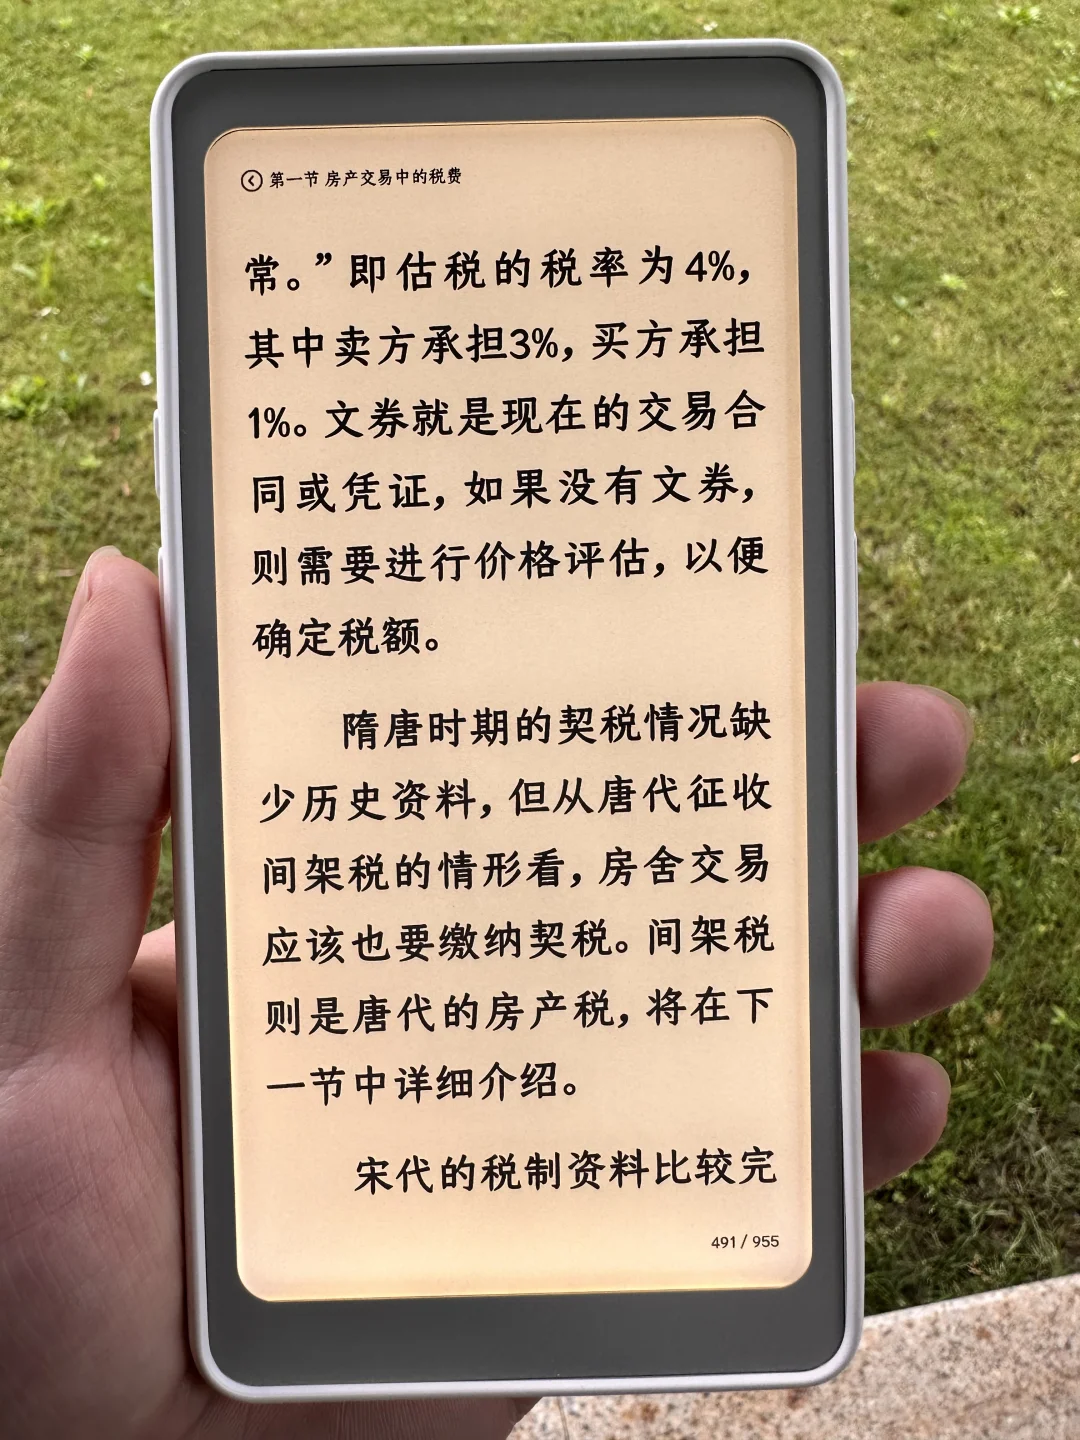 第一节 房产交易中的税费
常。”即估税的税率为4%，
其中卖方承担3%，买方承担
1%。文券就是现在的交易合
同或凭证，如果没有文券，
则需要进行价格评估，以便
确定税额。
隋唐时期的契税情况缺
少历史资料，但从唐代征收
间架税的情形看，房舍交易
应该也要缴纳契税。间架税
则是唐代的房产税，将在下
一节中详细介绍。
宋代的税制资料比较完
491 / 955